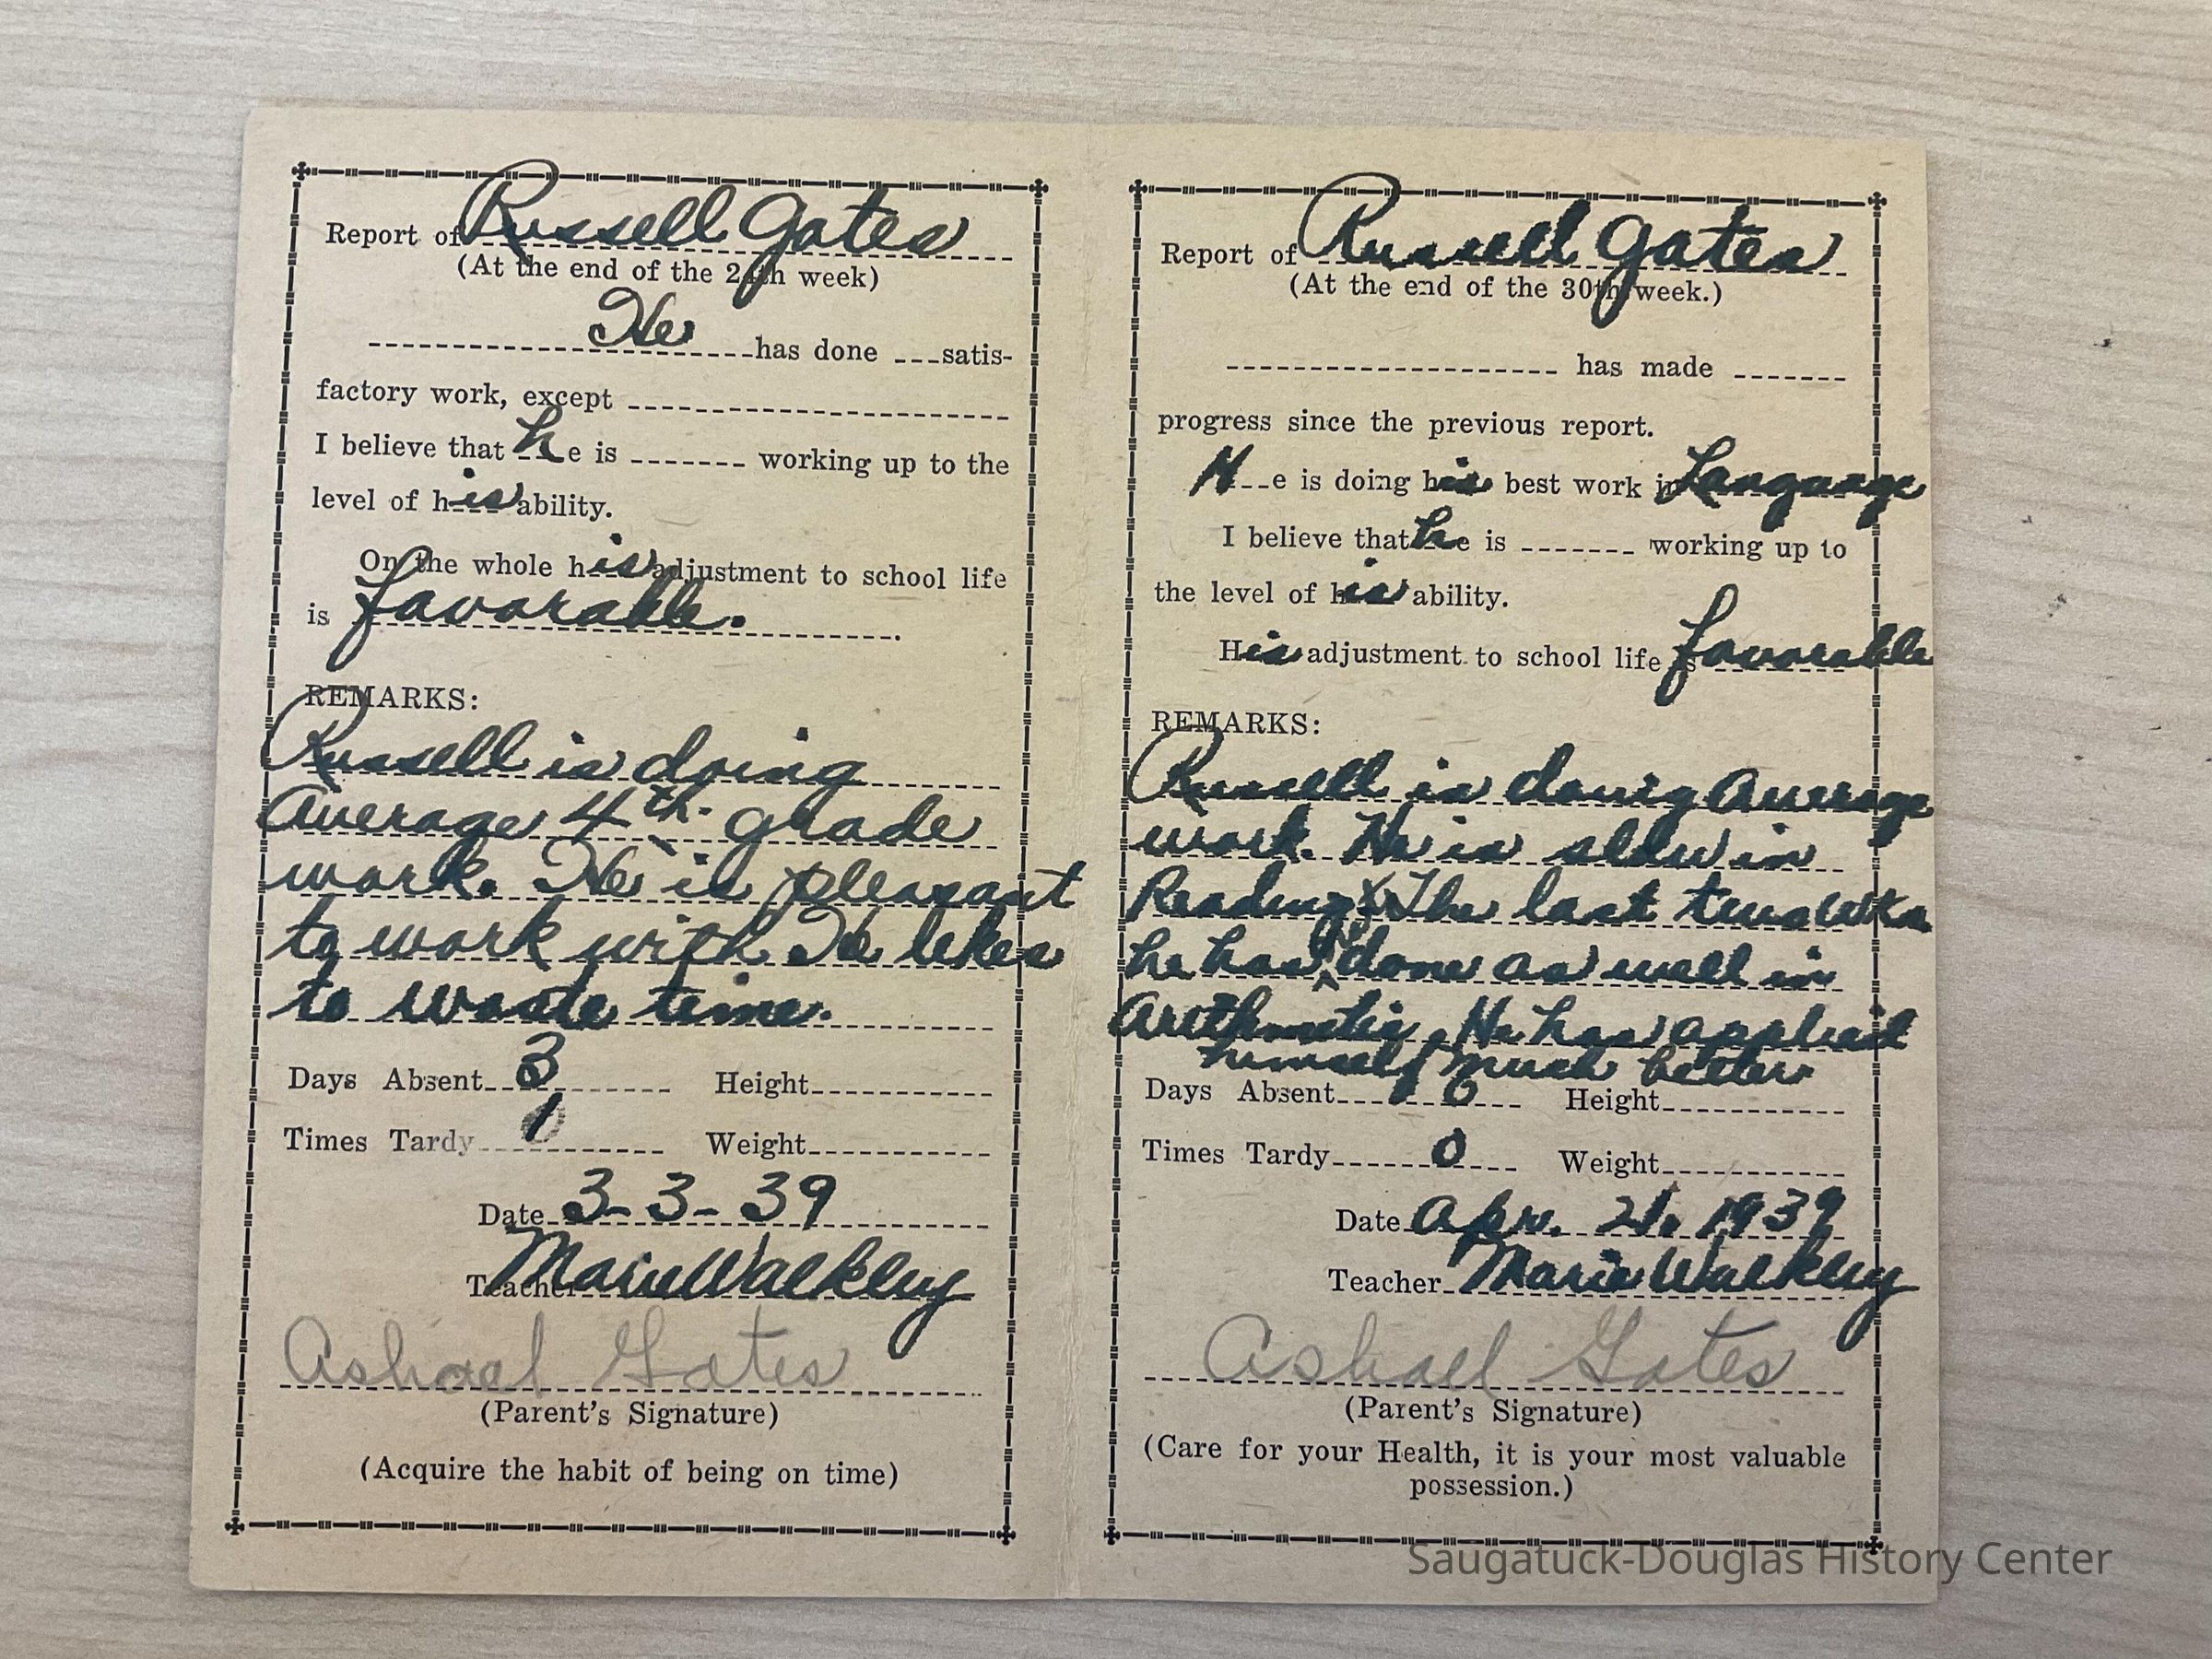 Report of Russell Gates
(At the end of the 24th week)
He has done ___ satis-
factory work, except
I believe that he is ------- working up to the
level of his ability.
On the whole his adjustment to school life
is favorable.
REMARKS:
Russell is doing
Average 4th. grade
work. He is pleasant
to work with He likes
to waste time.
Days Absent 3 Height
Times Tardy Weight
Date 3-3-39
Teacher Marie Walkley
Ashael Gates
(Parent's Signature)
(Acquire the habit of being on time)
Report of Russell Gates
(At the end of the 30th week.)
has made
progress since the previous report.
He is doing his best work in Language
I believe that he is ------- working up to
the level of his ability.
His adjustment to school life is favorable
REMARKS:
Russell is doing Average
work. He is slow in
Reading The last two wks
he has done as well in
Arithmetic. He has applied
himself much better
Days Absent 0 Height
Times Tardy 0 Weight
Date Apr. 21, 1939
Teacher Marie Walkley
Ashael Gates
(Parent's Signature)
(Care for your Health, it is your most valuable
possession.)
Saugatuck-Douglas History Center